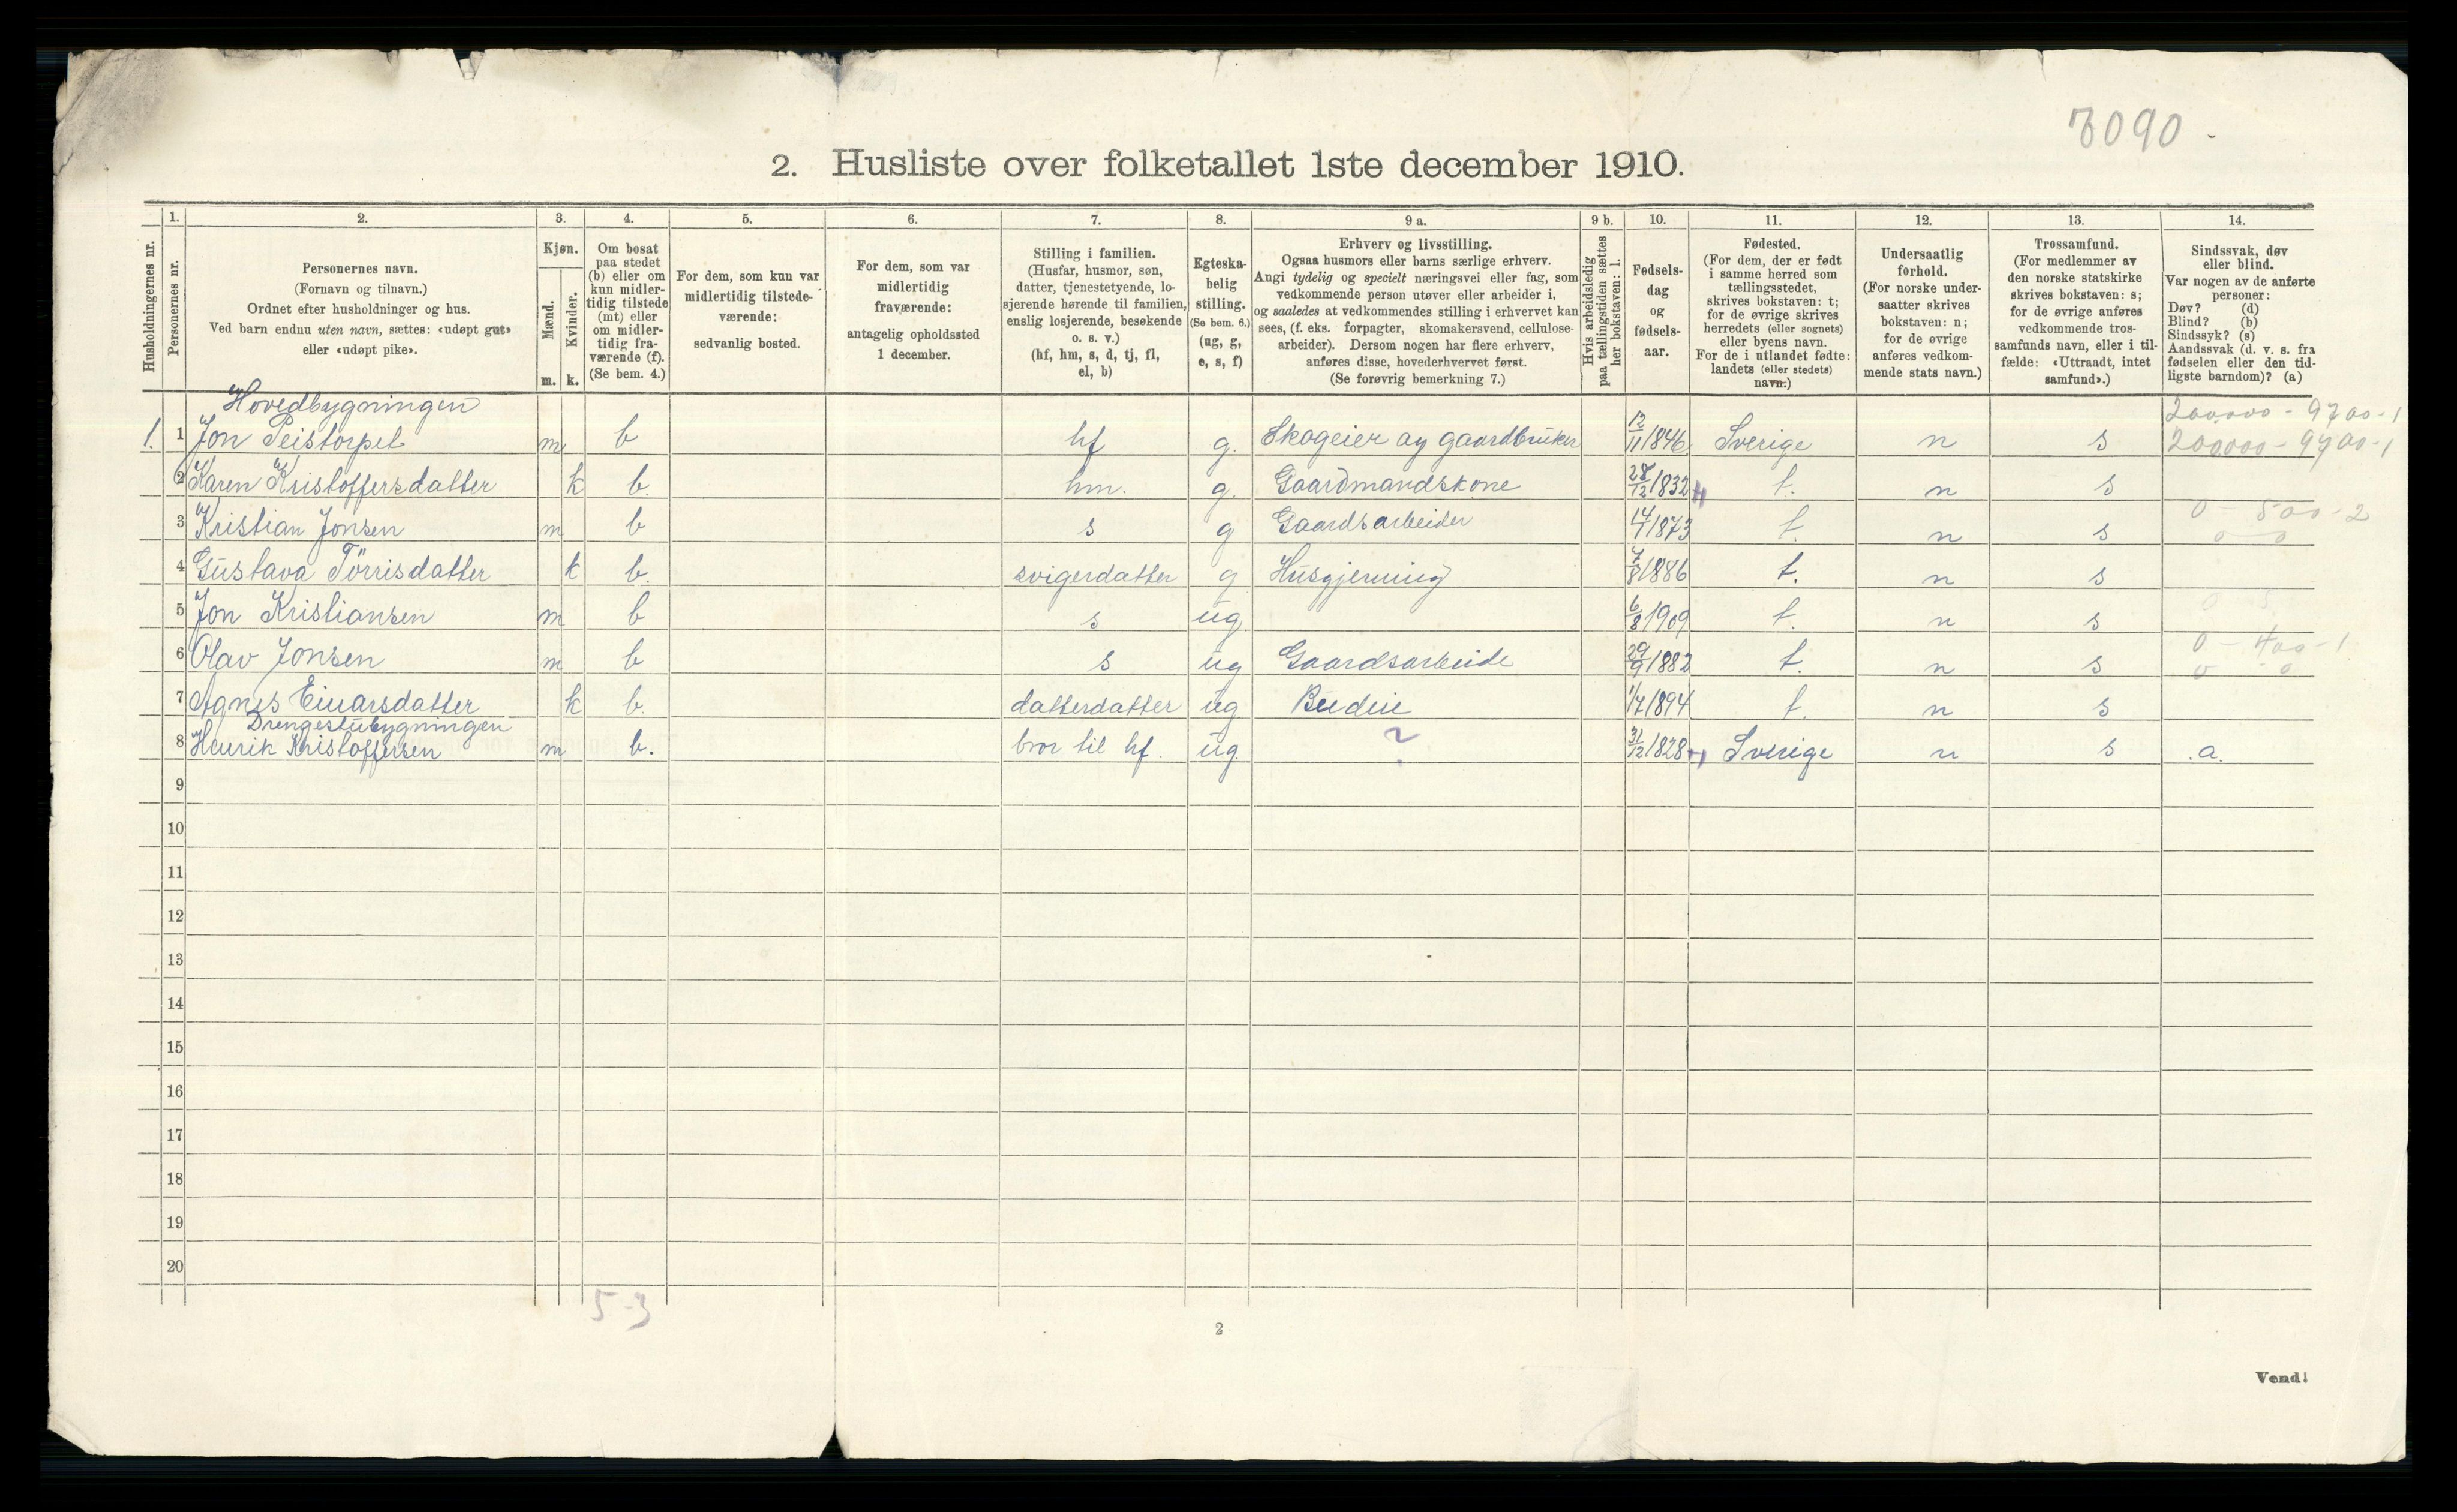 7090
2. Husliste over folketallet 1ste december 1910.
Husholdningernes nr.
1.
Personernes nr.
2.
Personernes navn.
(Fornavn og tilnavn.)
Ordnet efter husholdninger og hus.
Ved barn endnu uten navn, sættes: «udøpt gut»
eller «udøpt pike».
3.
Kjøn.
Mænd.
m.
Kvinder.
k.
4.
Om bosat
paa stedet
(b) eller om
kun midler-
tidig tilstede
(mt) eller
om midler-
tidig fra-
værende (f).
(Se bem. 4.)
5.
For dem, som kun var
midlertidig tilstede-
værende:
sedvanlig bosted.
6.
For dem, som var
midlertidig
fraværende:
antagelig opholdssted
1 december.
7.
Stilling i familien.
(Husfar, husmor, søn,
datter, tjenestetyende, lo-
sjerende hørende til familien,
enslig losjerende, besøkende
o. s. v.)
(hf, hm, s, d, tj, fl,
el, b)
8.
Egteska-
belig
stilling.
(Se bem. 6.)
(ug, g,
e, s, f)
9 a.
Erhverv og livsstilling.
Ogsaa husmors eller barns særlige erhverv.
Angi tydelig og specielt næringsvei eller fag, som
vedkommende person utøver eller arbeider i,
og saaledes at vedkommendes stilling i erhvervet kan
sees, (f. eks. forpagter, skomakersvend, cellulose-
arbeider). Dersom nogen har flere erhverv,
anføres disse, hovederhvervet først.
(Se forøvrig bemerkning 7.)
9 b.
Hvis arbeidsledig
paa tællingstiden sættes
her bokstaven: l.
10.
Fødsels-
dag
og
fødsels-
aar.
11.
Fødested.
(For dem, der er født
i samme herred som
tællingsstedet,
skrives bokstaven: t;
for de øvrige skrives
herredets (eller sognets)
eller byens navn.
For de i utlandet fødte:
landets (eller stedets)
navn.)
12.
Undersaatlig
forhold.
(For norske under-
saatter skrives
bokstaven: n;
for de øvrige
anføres vedkom-
mende stats navn.)
13.
Trossamfund.
(For medlemmer av
den norske statskirke
skrives bokstaven: s;
for de øvrige anføres
vedkommende tros-
samfunds navn, eller i til-
fælde: «Uttraadt, intet
samfund».)
14.
Sindssvak, døv
eller blind.
Var nogen av de anførte
personer:
Døv? (d)
Blind? (b)
Sindssyk? (s)
Aandssvak (d. v. s. fra
fødselen eller den tid-
ligste barndom)? (a)
Hovedbygningen 200000 - 9700 - 1
1. 1 Jon Peistorpet m b hf g. Skogeier og gaardbruker 12/11 1846 Sverige n s 200000 - 9700 - 1
2 Karen Kristoffersdatter k b. hm. g. Gaardmandskone 28/12 1832 t. n s
0 - 500 - 2
3 Kristian Jonsen m b s g Gaardsarbeider 14/1 1873 t. n s 0 0
4 Gustava Tørrisdatter k b. svigerdatter g Husgjerning 7/8 1886 t. n s
5 Jon Kristiansen m b s ug 6/8 1909 t. n s
0 - 400 - 1
6 Olav Jonsen m b s ug Gaardsarbeide 29/9 1882 t. n s 0 0
7 Agnes Einarsdatter k b. datterdatter ug Budeie 1/7 1894 t. n s
Drengestubygningen
8 Henrik Kristoffersen m b. bror til hf. ug. ? 31/12 1828 Sverige n s a.
9
10
11
12
13
14
15
16
17
18
19
20
5-3
2
Vend!